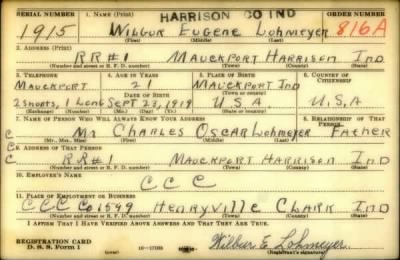 HARRISON CO IND
SERIAL NUMBER 1. NAME (Print) ORDER NUMBER
1915 Wilbur Eugene Lohmeyer 816A
(First) (Middle) (Last)
2. ADDRESS (Print)
RR#1 Mauckport Harrison Ind
(Number and street or R. F. D. number) (Town) (County) (State)
3. TELEPHONE 4. AGE IN YEARS 5. PLACE OF BIRTH 6. COUNTRY OF CITIZENSHIP
Mauckport 21 Mauckport Ind
DATE OF BIRTH
2 Shorts, 1 Long Sept 23, 1919 U.S.A. U.S.A
(Exchange) (Number) (Mo.) (Day) (Yr.) (State or country)
7. NAME OF PERSON WHO WILL ALWAYS KNOW YOUR ADDRESS 8. RELATIONSHIP OF THAT PERSON
Mr Charles Oscar Lohmeyer Father
(Mr., Mrs., Miss) (First) (Middle) (Last)
9. ADDRESS OF THAT PERSON
RR#1 Mauckport Harrison Ind
(Number and street or R. F. D. number) (Town) (County) (State)
10. EMPLOYER'S NAME
CCC
11. PLACE OF EMPLOYMENT OR BUSINESS
CCC Co 1599 Henryville Clark Ind
(Number and street or R. F. D. number) (Town) (County) (State)
I AFFIRM THAT I HAVE VERIFIED ABOVE ANSWERS AND THAT THEY ARE TRUE.
REGISTRATION CARD
D. S. S. Form 1 16—17105 Wilbur E Lohmeyer.
(Registrant's signature)